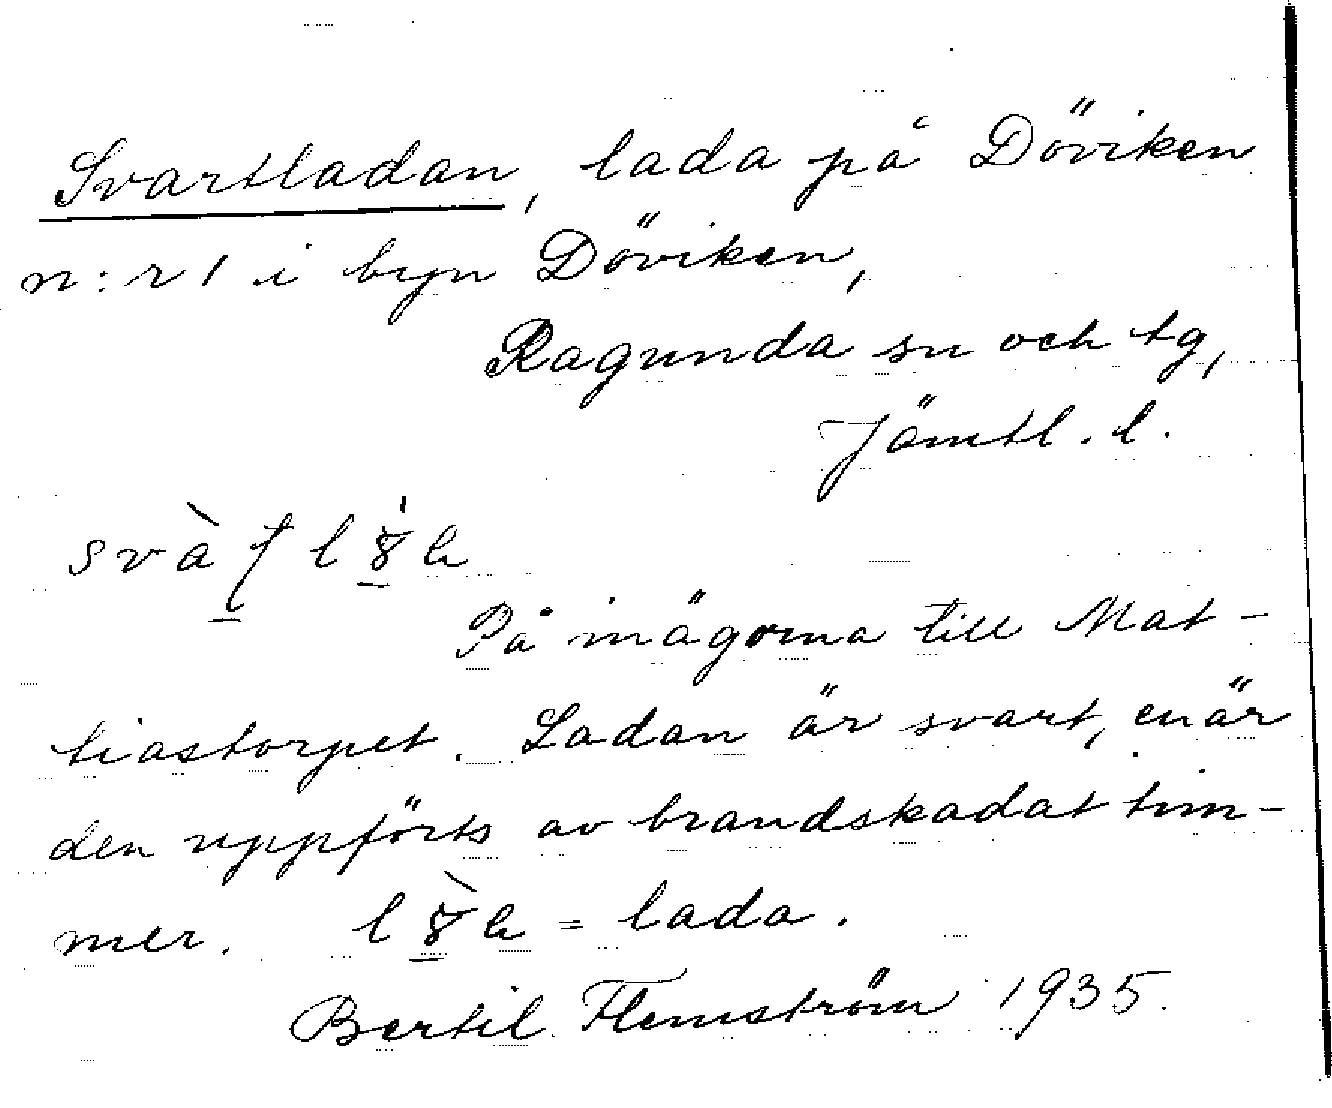 Svartladan, lada på Döviken
n:r 1 i byn Döviken,
Ragunda sn och tg,
Jämtl. l.
På inägorna till Mat-
tiastorpet. Ladan är svart, enär
den uppförts av brandskadat tim-
mer. = lada.
Bertil Flemström 1935.